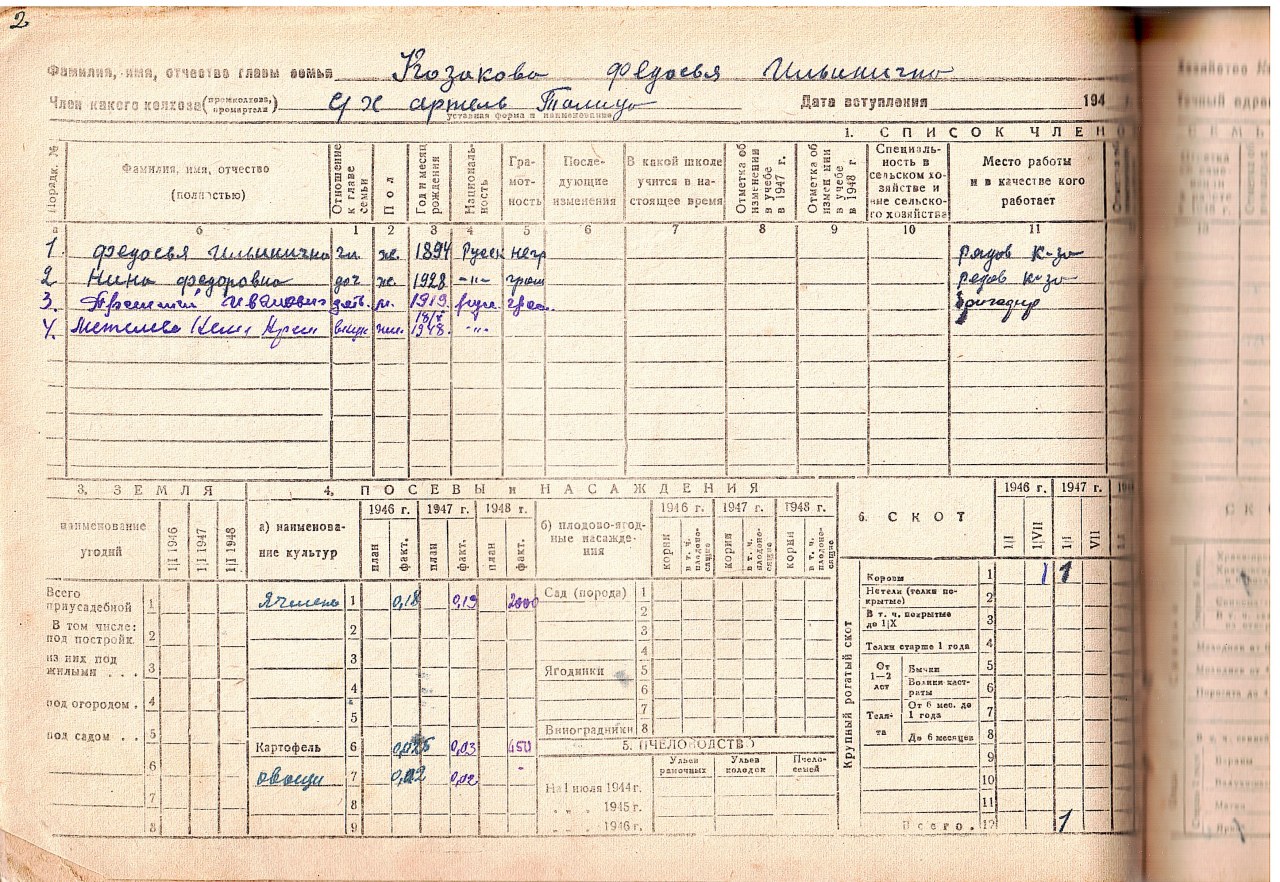 2
Фамилия, имя, отчество главы семьи Козакова Федосья Ильинична
Член какого колхоза (промколхоза, промартели) с/х артель Талица Дата вступления 194
уставная форма и наименование
1. СПИСОК ЧЛЕНО
Порядк. № Фамилия, имя, отчество (полностью) Отношение к главе семьи Пол Год и месяц рождения Националь-ность Гра-мот-ность После-дующие изменения В какой школе учится в на-стоящее время Отметка об изменении в учебе в 1947 г. Отметка об изменении в учебе в 1948 г Специаль-ность в сельском хо-зяйстве и вне сельско-го хозяйства Место работы и в качестве кого работает
а б 1 2 3 4 5 6 7 8 9 10 11
1. Федосья Ильинична гл. ж. 1894 Русск негр рядов к-за
2 Нина Федоровна доч ж. 1928 -"- грам рядов к-за
3. Иванович зять. м. 1919 бригадир
4. внук 1948. -"-
3. ЗЕМЛЯ
наименование угодий 1|I 1946 1|I 1947 1|I 1948
Всего приусадебной 1
В том числе: под постройк. 2
из них под жилыми . . . 3
под огородом . 4
под садом . . 5
6
7
8
4. ПОСЕВЫ и НАСАЖДЕНИЯ
а) наименова-ние культур 1946 г. 1947 г. 1948 г.
план факт. план факт. план факт.
Ячмень 1 0,18 0,19 2000
2
3
4
5
Картофель 6 0,025 0,03 450
овощи 7 0,02 0,02 -
8
9
б) плодово-ягод-ные насажде-ния 1946 г. 1947 г. 1948 г.
корни в т. ч. плодоно-сящие корни в т. ч. плодоно-сящие корни в т. ч. плодоно-сящие
Сад (порода) 1
2
3
4
Ягодники 5
6
7
Виноградники 8
5. ПЧЕЛОВОДСТВО
Ульев рамочных Ульев колодок Пчело-семей
На 1 июля 1944 г.
" " 1945 г.
" " 1946 г.
6. СКОТ 1946 г. 1947 г.
1|I 1|VII 1|I VII
Крупный рогатый скот
Коровы 1 1 1
Нетели (телки по-крытые) 2
В т. ч. покрытые до 1|X 3
Телки старше 1 года 4
От 1—2 лет Бычки 5
Волики каст-раты 6
Теля-та От 6 мес. до 1 года 7
До 6 месяцев 8
9
10
11
Всего. 12 1